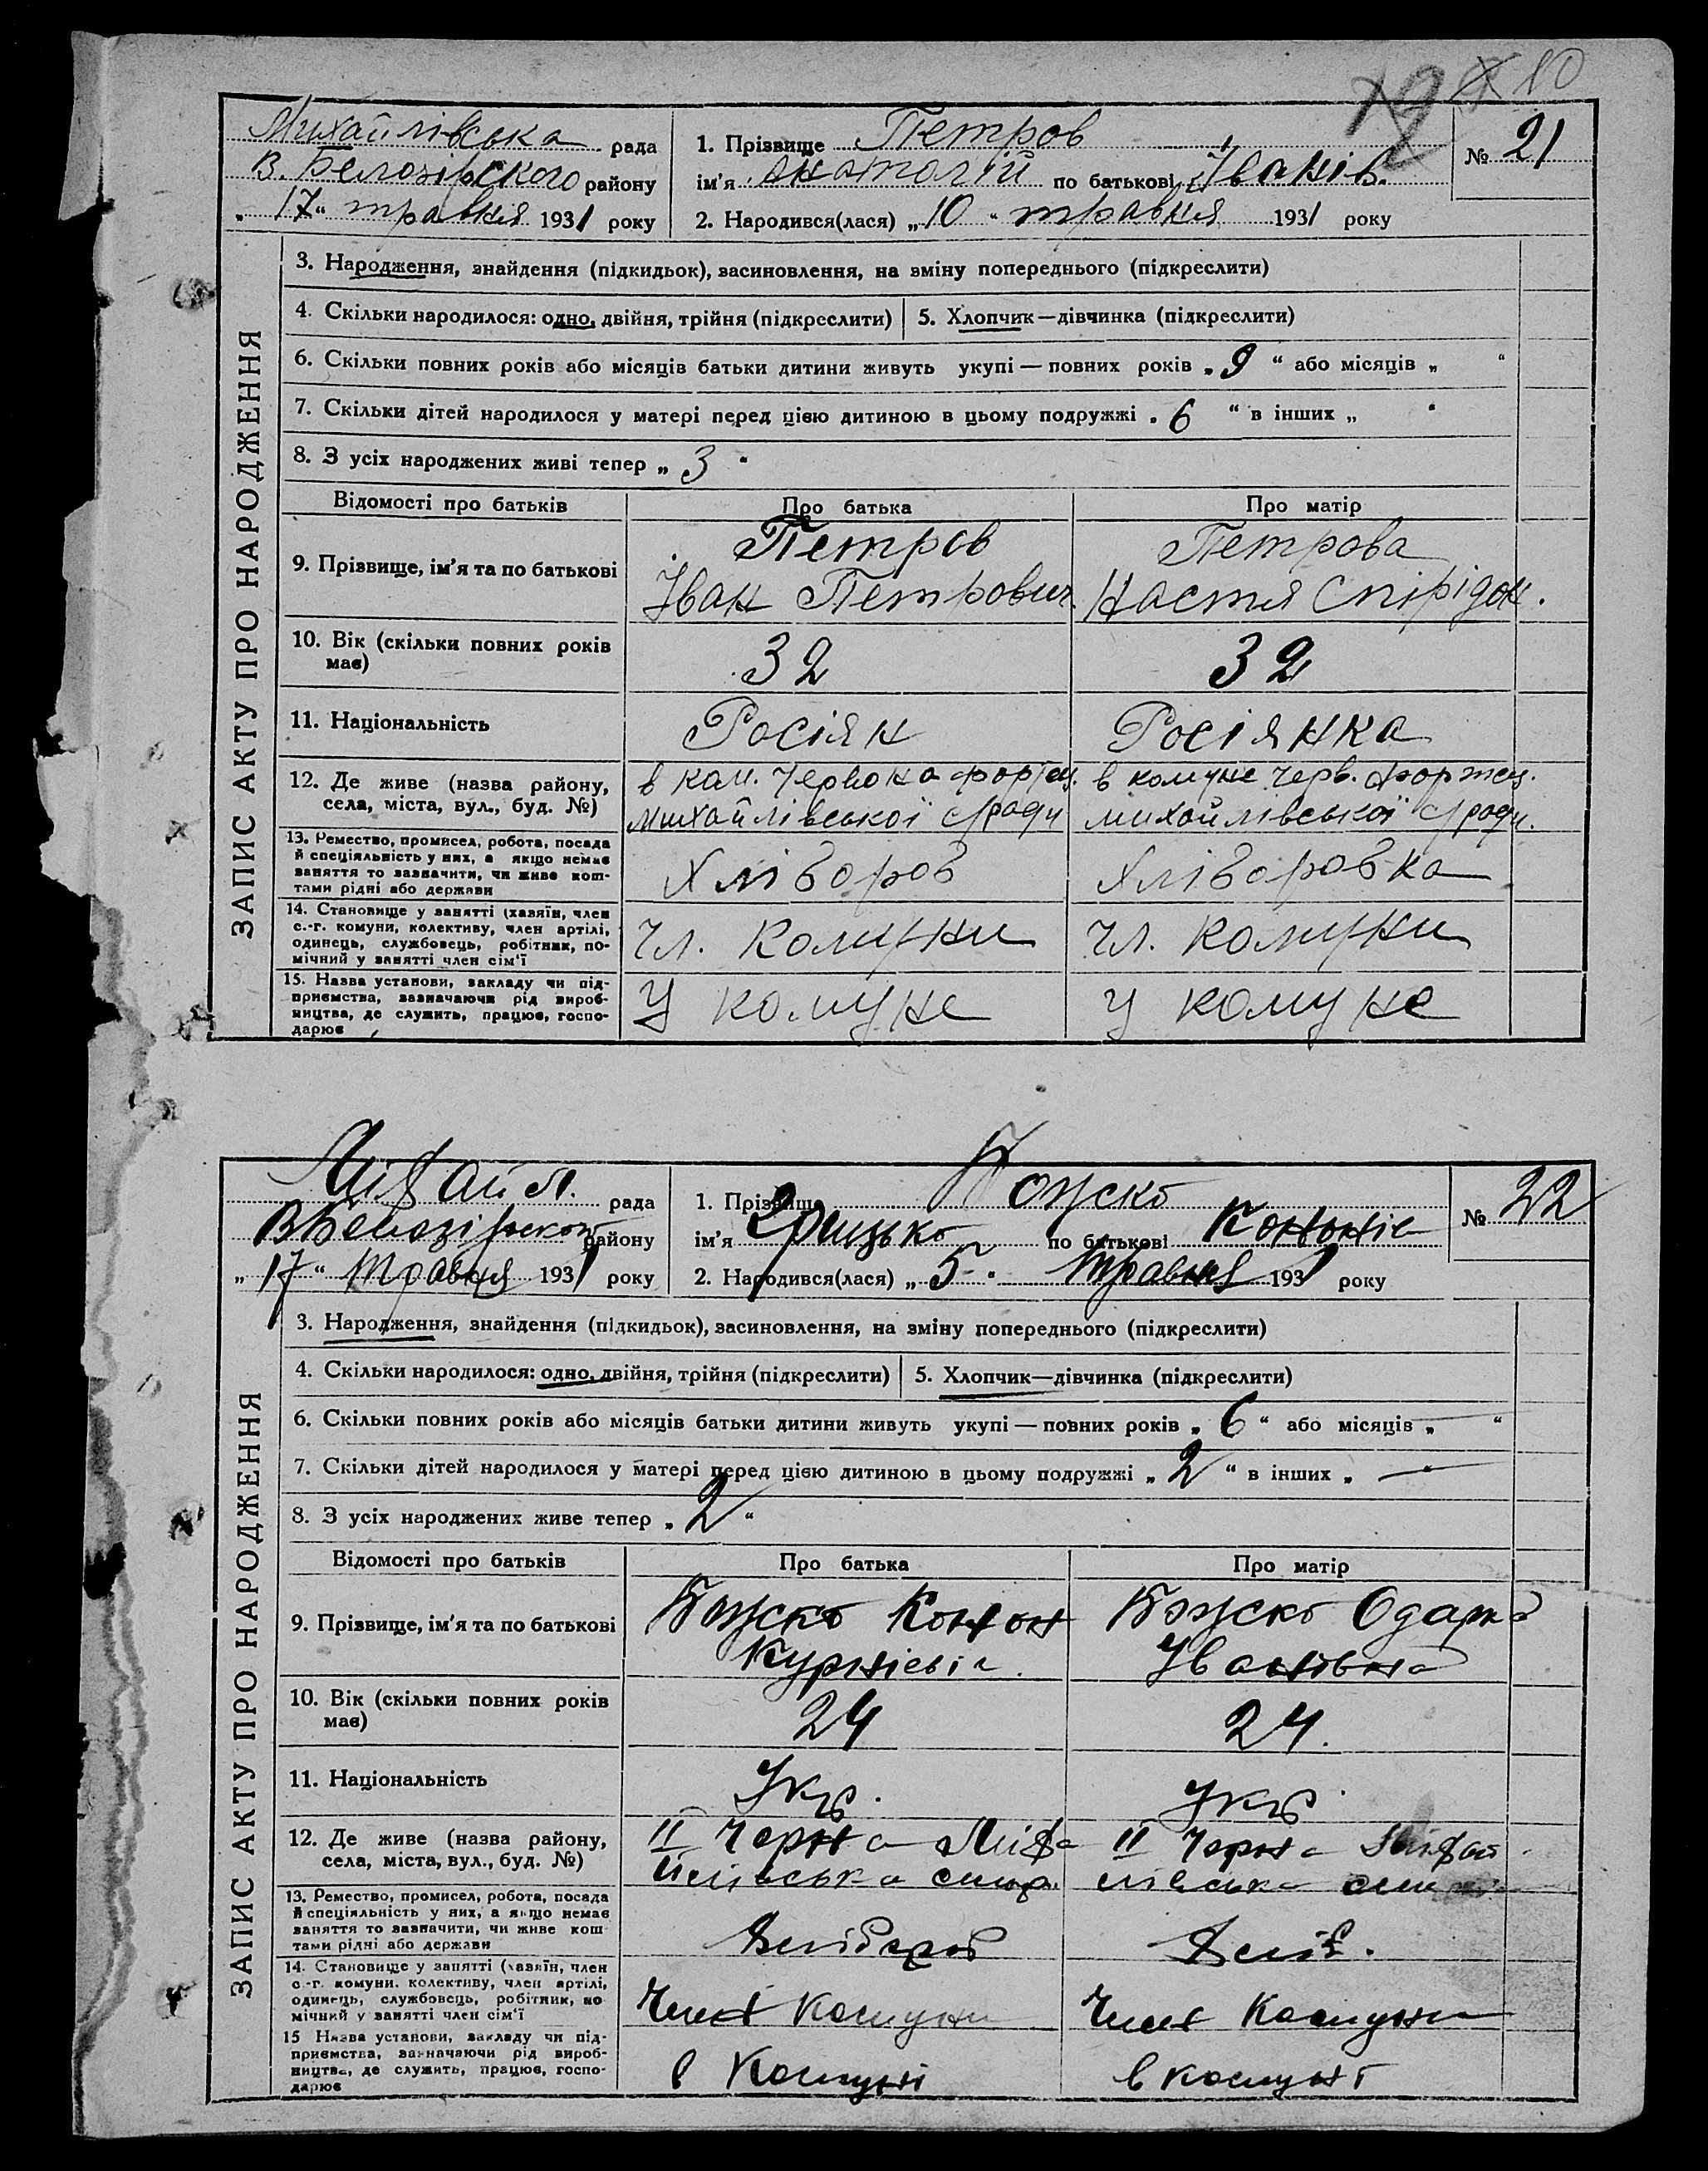 80
Михайлівська рада
В. Белозірского району
„ 17 “ травня 1931 року
1. Прізвище Петров
ім'я Анатолій по батькові Іванів.
2. Народився(лася) „ 10 “ травня 1931 року
№ 21
ЗАПИС АКТУ ПРО НАРОДЖЕННЯ
3. Народження, знайдення (підкидьок), засиновлення, на зміну попереднього (підкреслити)
4. Скільки народилося: одно, двійня, трійня (підкреслити) 5. Хлопчик—дівчинка (підкреслити)
6. Скільки повних років або місяців батьки дитини живуть укупі — повних років „ 9 “ або місяців „ “
7. Скільки дітей народилося у матері перед цією дитиною в цьому подружжі „ 6 “ в інших „ “
8. З усіх народжених живі тепер „ 3 “
Відомості про батьків Про батька Про матір
9. Прізвище, ім'я та по батькові
Петров
Іван Петрович.
Петрова
Настя Спірідон.
10. Вік (скільки повних років
має)
32
32
11. Національність
Росіян
Росіянка
12. Де живе (назва району,
села, міста, вул., буд. №)
в ком. Червона
Михайлівської с/ради
в комуне Черв.
михайлівської с/ради.
13. Ремество, промисел, робота, посада
й спеціяльність у них, а якщо немає
заняття то зазначити, чи живе кош-
тами рідні або держави
Хліборов
Хліборовка
14. Становище у занятті (хазяїн, член
с.-г. комуни, колективу, член артілі,
одинець, службовець, робітник, по-
мічний у занятті член сім'ї
Чл. Комуни
Чл. комуни
15. Назва установи, закладу чи під-
приємства, зазначаючи рід вироб-
ництва, де служить, працює, госпо-
дарює
У комуне
у комуне
Міхайл. рада
В Белозірской району
„ 17 “ травня 1931 року
1. Прізвище Божско
ім'я Грицько по батькові Кононів
2. Народився(лася) „ 5 “ травня 1931 року
№ 22
ЗАПИС АКТУ ПРО НАРОДЖЕННЯ
3. Народження, знайдення (підкидьок), засиновлення, на зміну попереднього (підкреслити)
4. Скільки народилося: одно, двійня, трійня (підкреслити) 5. Хлопчик—дівчинка (підкреслити)
6. Скільки повних років або місяців батьки дитини живуть укупі — повних років „ 6 “ або місяців „ — “
7. Скільки дітей народилося у матері перед цією дитиною в цьому подружжі „ 2 “ в інших „ — “
8. З усіх народжених живе тепер „ 2 “
Відомості про батьків Про батька Про матір
9. Прізвище, ім'я та по батькові
Божско Конон
Божско Одарка
Івановна
10. Вік (скільки повних років
має)
24
24.
11. Національність
Укр.
Укр.
12. Де живе (назва району,
села, міста, вул., буд. №)
II Черн а Міха
йлівська
II Черн а Міхай
лівська
13. Ремество, промисел, робота, посада
й спеціяльність у них, а якщо немає
заняття то зазначити, чи живе кош
тами рідні або держави
Хлібороб
Хліб.
14. Становище у занятті (хазяїн, член
с.-г. комуни, колективу, член артілі,
одинець, службовець, робітник, по
мічний у занятті член сім'ї
Член Комуни
Член Комуни
15 Назва установи, закладу чи під-
приємства, зазначаючи рід вироб-
ництва, де служить, працює, госпо-
дарює
в Комуні
в комуні